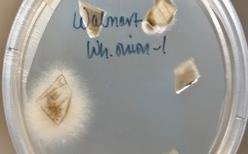 Walmart
Wh. onion-1